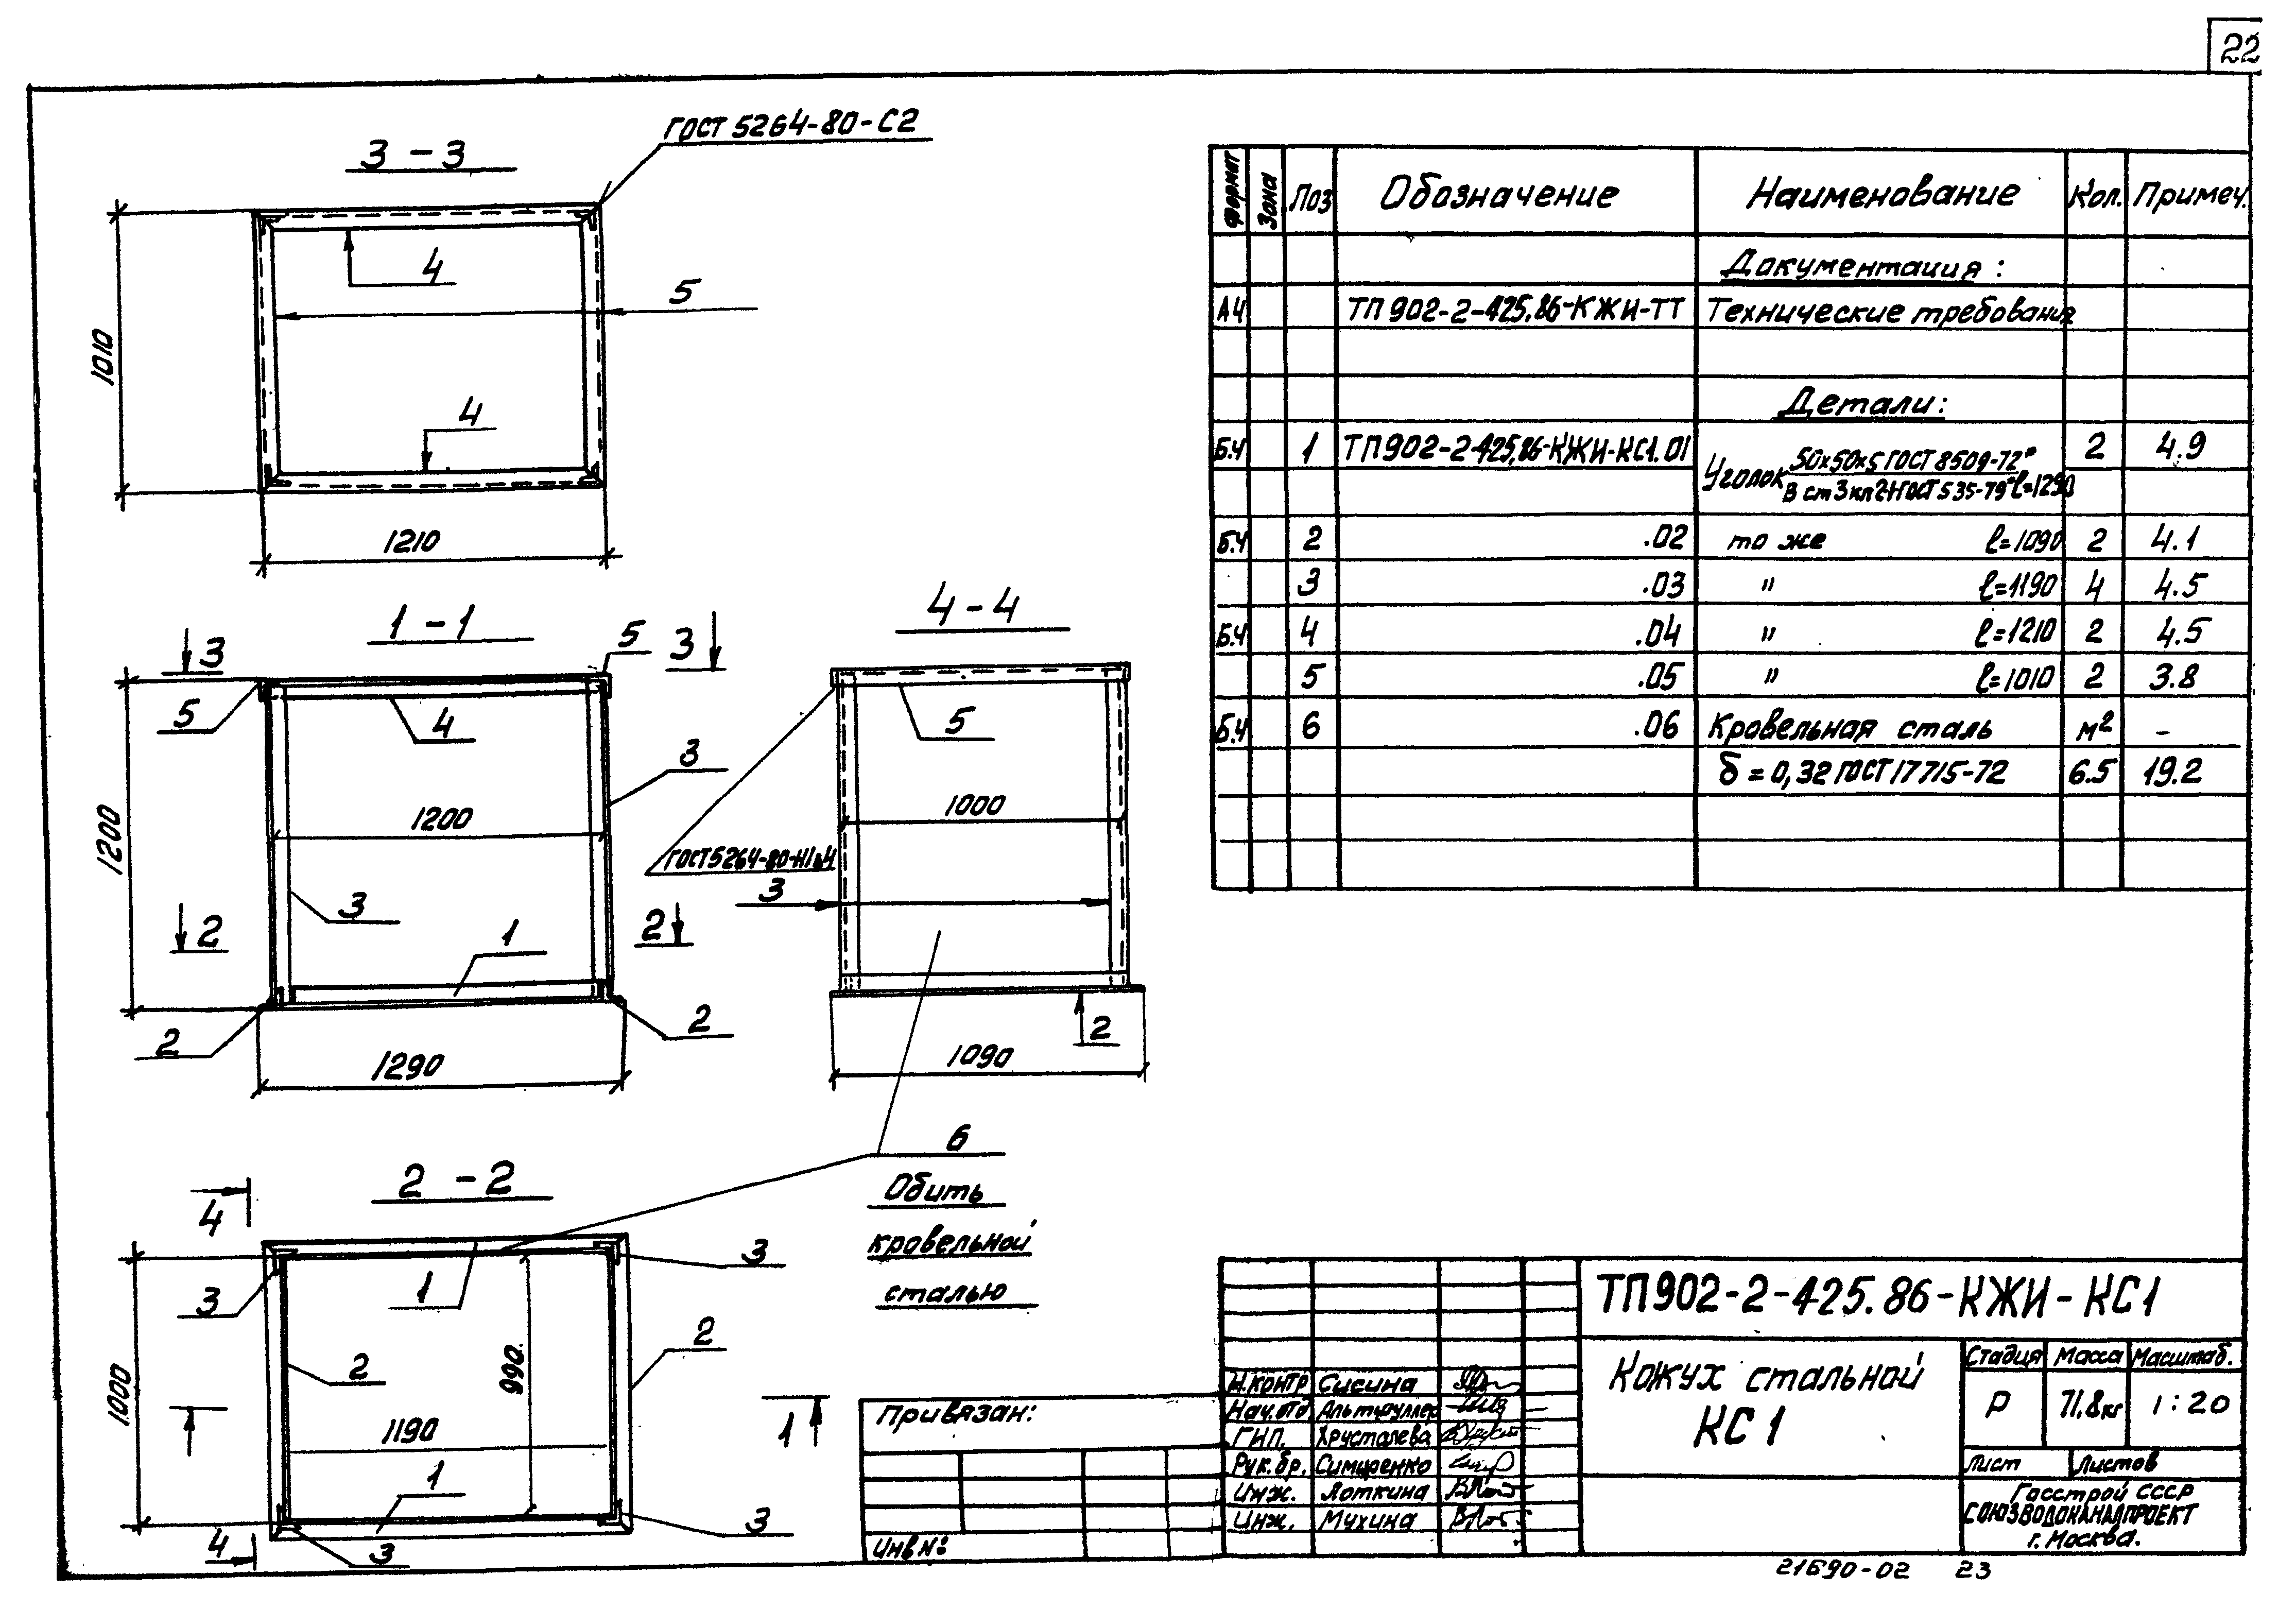 22
3 - 3
ГОСТ 5264-80-С2
4
5
4
1010
1210
1 - 1
3
5
3
5
4
3
1200
1200
3
2
2
1
2
2
1290
4 - 4
5
1000
3
2
1090
6
Обить
кровельной
сталью
2 - 2
4
3
3
1
2
2
990
1000
1190
1
1
3
3
4
Формат Зона Поз Обозначение Наименование Кол. Примеч.
Документация:
А4 ТП 902-2-425.86-КЖИ-ТТ Технические требования
Детали:
Б.Ч 1 ТП902-2-425.86-КЖИ-КС1.01 Уголок 50х50х5 ГОСТ 8509-72* 2 4.9
В ст 3 кп 2-I ГОСТ 535-79* ℓ=1290
Б.Ч 2 .02 то же ℓ=1090 2 4.1
3 .03 " ℓ=1190 4 4.5
Б.Ч 4 .04 " ℓ=1210 2 4.5
5 .05 " ℓ=1010 2 3.8
Б.Ч 6 .06 Кровельная сталь м² -
δ = 0,32 ГОСТ 17715-72 6.5 19.2
ТП902-2-425.86-КЖИ-КС1
Кожух стальной
КС 1
Стадия Масса Масштаб.
Р 71.8 кг 1:20
Лист Листов
Госстрой СССР
СОЮЗВОДОКАНАЛПРОЕКТ
г. Москва.
Н.контр Сисина
Нач.отд Альтшуллер
ГИП. Хрусталева
Рук.бр.
Инж. Лоткина
Инж. Мухина
Привязан:
Инв №:
21690-02 23